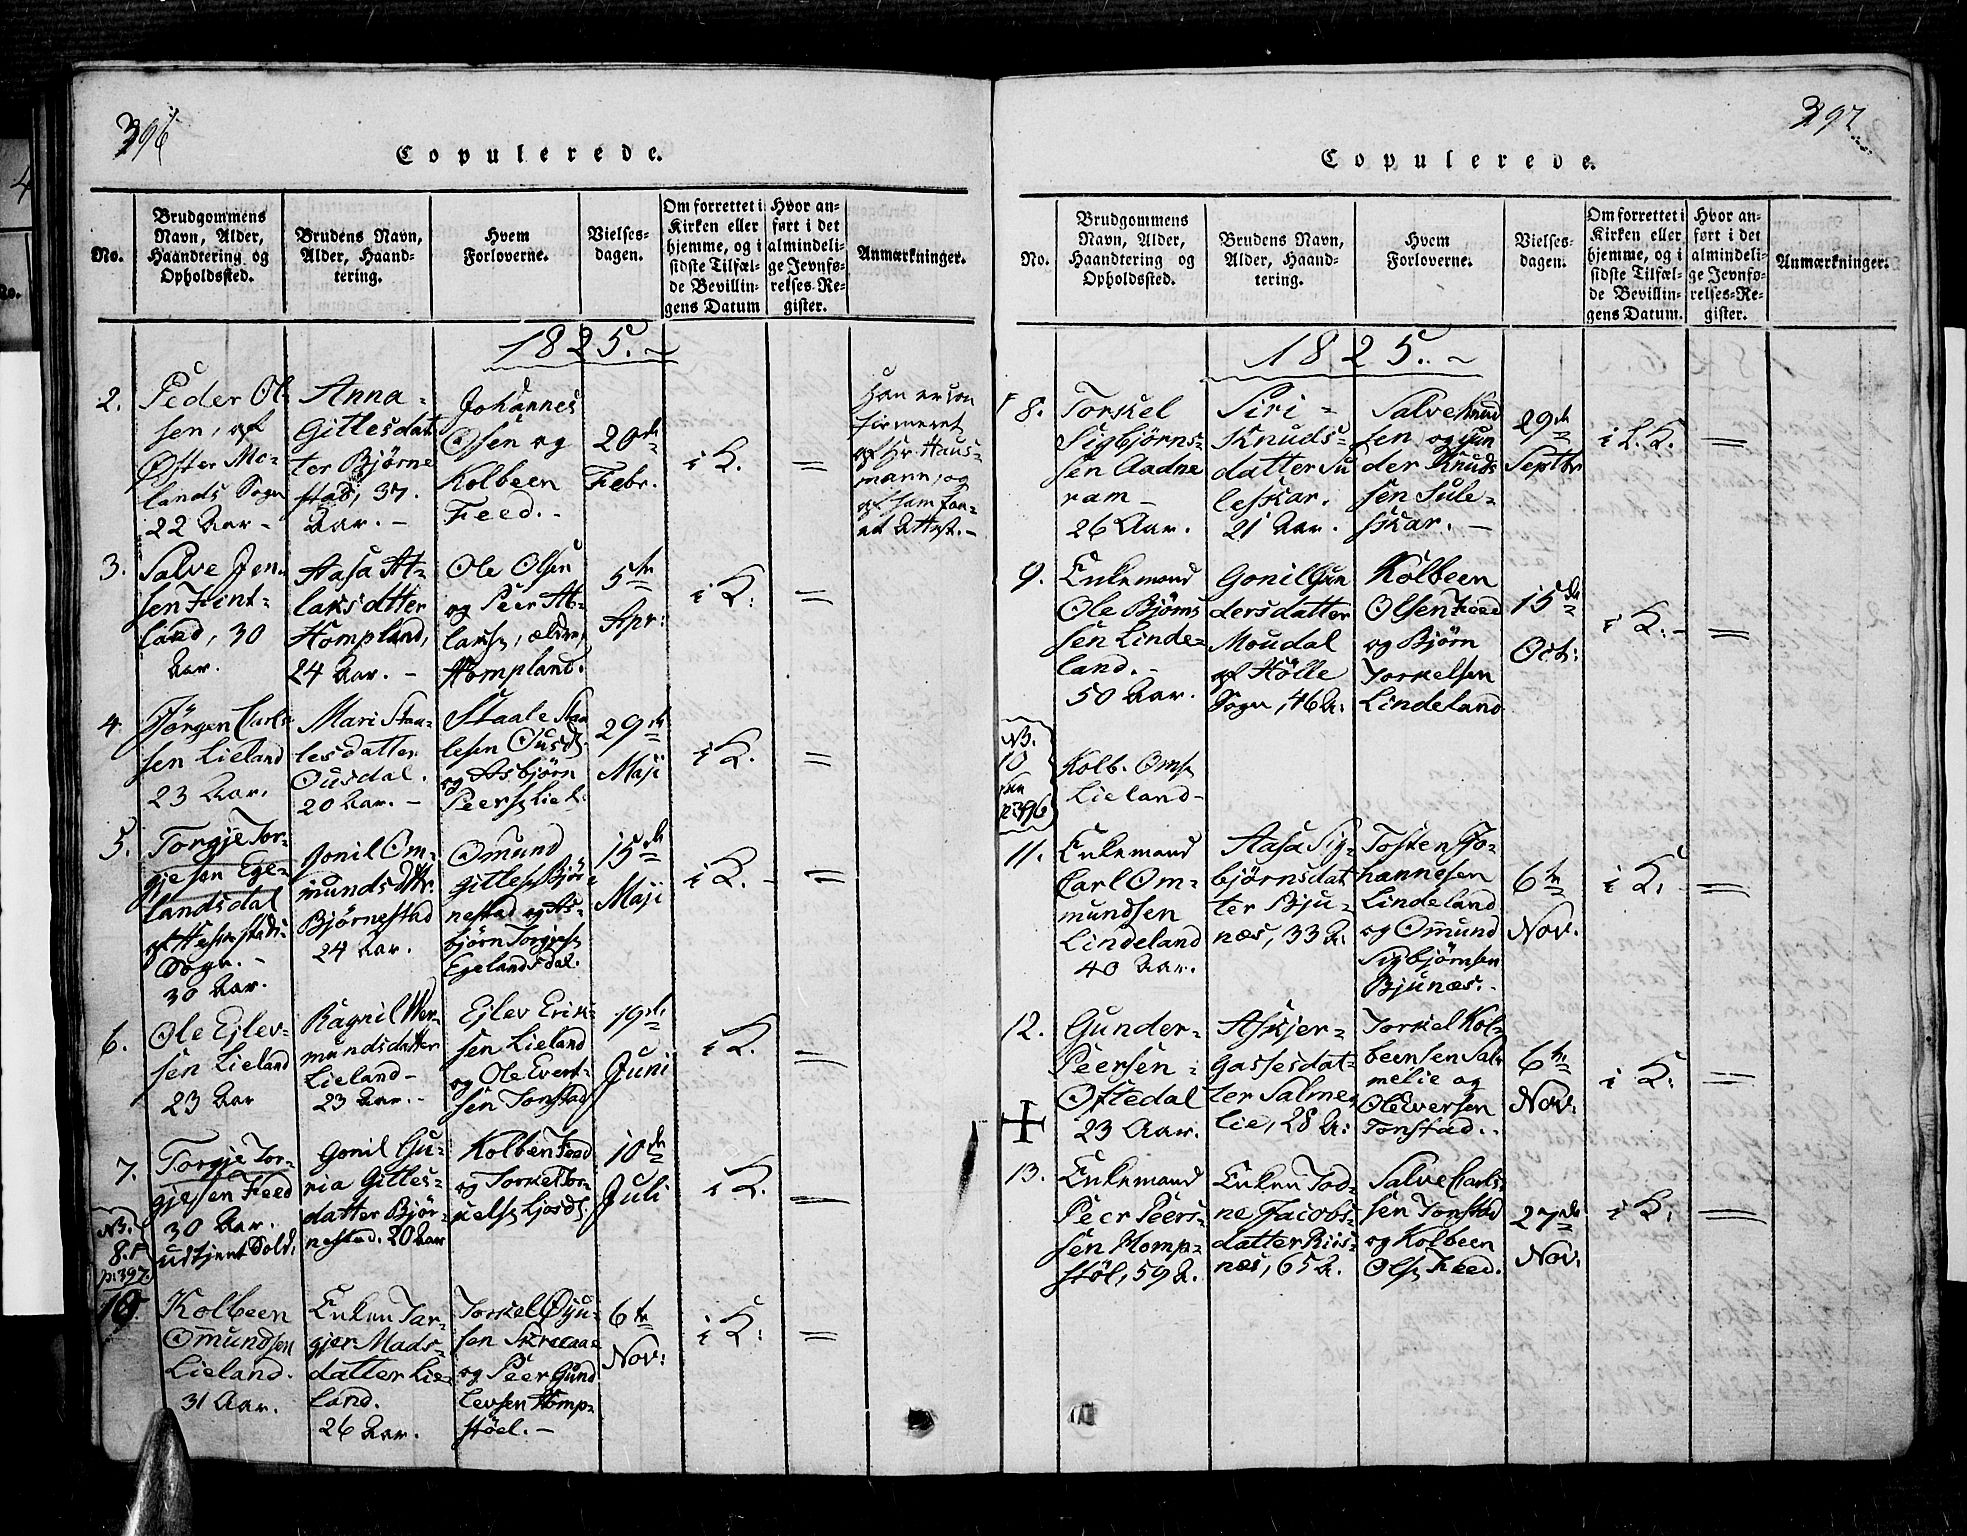 396
Copulerede.
No.
Brudgommens
Navn, Alder,
Haandtering og
Opholdssted.
Brudens Navn,
Alder, Haand-
tering.
Hvem
Forloverne.
Vielses-
dagen.
Om forrettet i
Kirken eller
hjemme, og i
sidste Tilfæl-
de Bevillin-
gens Datum
Hvor an-
ført i det
almindeli-
ge Jevnfø-
relses-Re-
gister.
Anmærkninger.
1825.
2.
Peder Ol
sen, af
Øster Mo-
lands Sogn
22 Aar -
Anna -
Gitlesdat
ter Bjørne
stad, 37.
Aar. -
Johannes
Osen og
Kolbeen
Feed. -
20de
Febr.
i K.
=
Han er con
firmeret
af Hr. Haus-
mann, og
af ham for-
et Attest. -
3.
Salve Jen-
sen Fint-
land, 30
Aar.
Aasa At-
laksdatter
Hompland,
24 Aar. -
Ole Olsen
og Peer At-
laks, ældre,
Hompland.
5te
Apr:
i K:
=
4.
Jørgen Carls
sen Lieland
23 Aar.
Mari Staa-
lesdatter
Ousdal.
20 Aar. -
Staale Staa
lesen Ousd:
og Asbjørn
Peers Liel:
29de
Maji
i K.
=
5.
Torgje Tor-
gjesen Ege-
landsdal
af Hessestad
Sogn. -
30 Aar.
Gonil Om-
munds Dttr.
Bjørnestad
24 Aar.
Omund
Gitles Bjør-
nestad og As-
bjørn Torgjes
Egelandsdal.
15de
Maji
i K. -
=
6.
Ole Ejlev-
sen Lieland
23 Aar
Ragnil Wer-
mundsdatter
Lieland -
23 Aar. -
Ejlev Erik-
sen Lieland
og Ole Evert-
sen Tonstad
19de
Juni
i K.
=
7.
Torgje Tor-
gjesen Feed
30 Aar.
udtjent Sold.
Gonil Gu-
ria Gitles-
datter Bjør-
nestad. 20 Aar
Kolben Feed
og Torkel Tor-
kels Liosd.
10de
Juli
i K.
=
NB.
8.
p. 397.
10.
Kolbeen
Omundsen
Lieland.
31 Aar.
Enken Tar-
gjer Mads-
datter Lie-
land.
26 Aar.
Torkel Oju-
sen Skreaa
og Peer Gund
levsen Homp-
støel. -
6te
Nov:
i K:
=
397
Copulerede.
No.
Brudgommens
Navn, Alder,
Haandtering og
Opholdssted.
Brudens Navn,
Alder, Haand-
tering.
Hvem
Forloverne.
Vielses-
dagen.
Om forrettet i
Kirken eller
hjemme, og i
sidste Tilfæl-
de Bevillin-
gens Datum.
Hvor an-
ført i det
almindeli-
ge Jevnfø-
relses-Re-
gister.
Anmærkninger.
1825. -
8.
Torkel
Sigbjørns-
sen Aadne
ram -
26 Aar.
Siri -
Knuds-
datter Su
leskar.
21 Aar.
Salve Knud
sen og Gun
der Knuds
sen Sule-
skar. -
29de
Septbr
i L.K.
=
9.
Enkemand
Ole Bjørns
sen Linde-
land. -
50 Aar.
Gonil Gun
dersdatter
Moudal
af Hølle
Sogn, 46 A.
Kolbeen
Olsen Feed
og Bjørn
Torkelsen
Lindeland
15de
Oct:
i K. -
=
NB.
10
p. 396
Kolb. Oms
Lieland -
11.
Enkemand
Carl Om-
mundsen
Lindeland
40 Aar.
Aasa Sig-
bjørnsdat
ter Bju-
næs, 33 A.
Tosten Jo-
hannesen
Lindeland
og Omund
Sigbjørnsen
Bjunæs. -
6te
Nov.
i K.
=
12.
Gunder -
Peersen -
Oftedal
23 Aar.
Askjer -
Gassesdat-
ter Salme-
lie, 28 A:
Torkel Kol-
beensen Sal-
melie og
Ole Eversen
Tonstad. -
6te
Nov.
i K:
=
13.
Enkemand
Peer Peers-
sen Homp-
støl, 59 A.
Enken Tod-
ne Jacobs-
datter Riis-
næs, 65 A.
Salve Carls
sen Tonstad
og Kolbeen
Ols Feed.
27de
Nov.
i K.
=